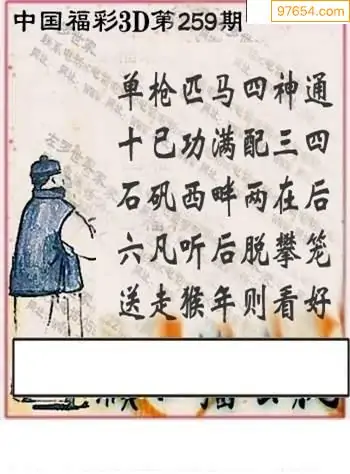 97654.com
中国福彩3D第259期
单枪匹马四神通
十已功满配三四
石矾西畔两在后
六凡听后脱攀笼
送走猴年则看好